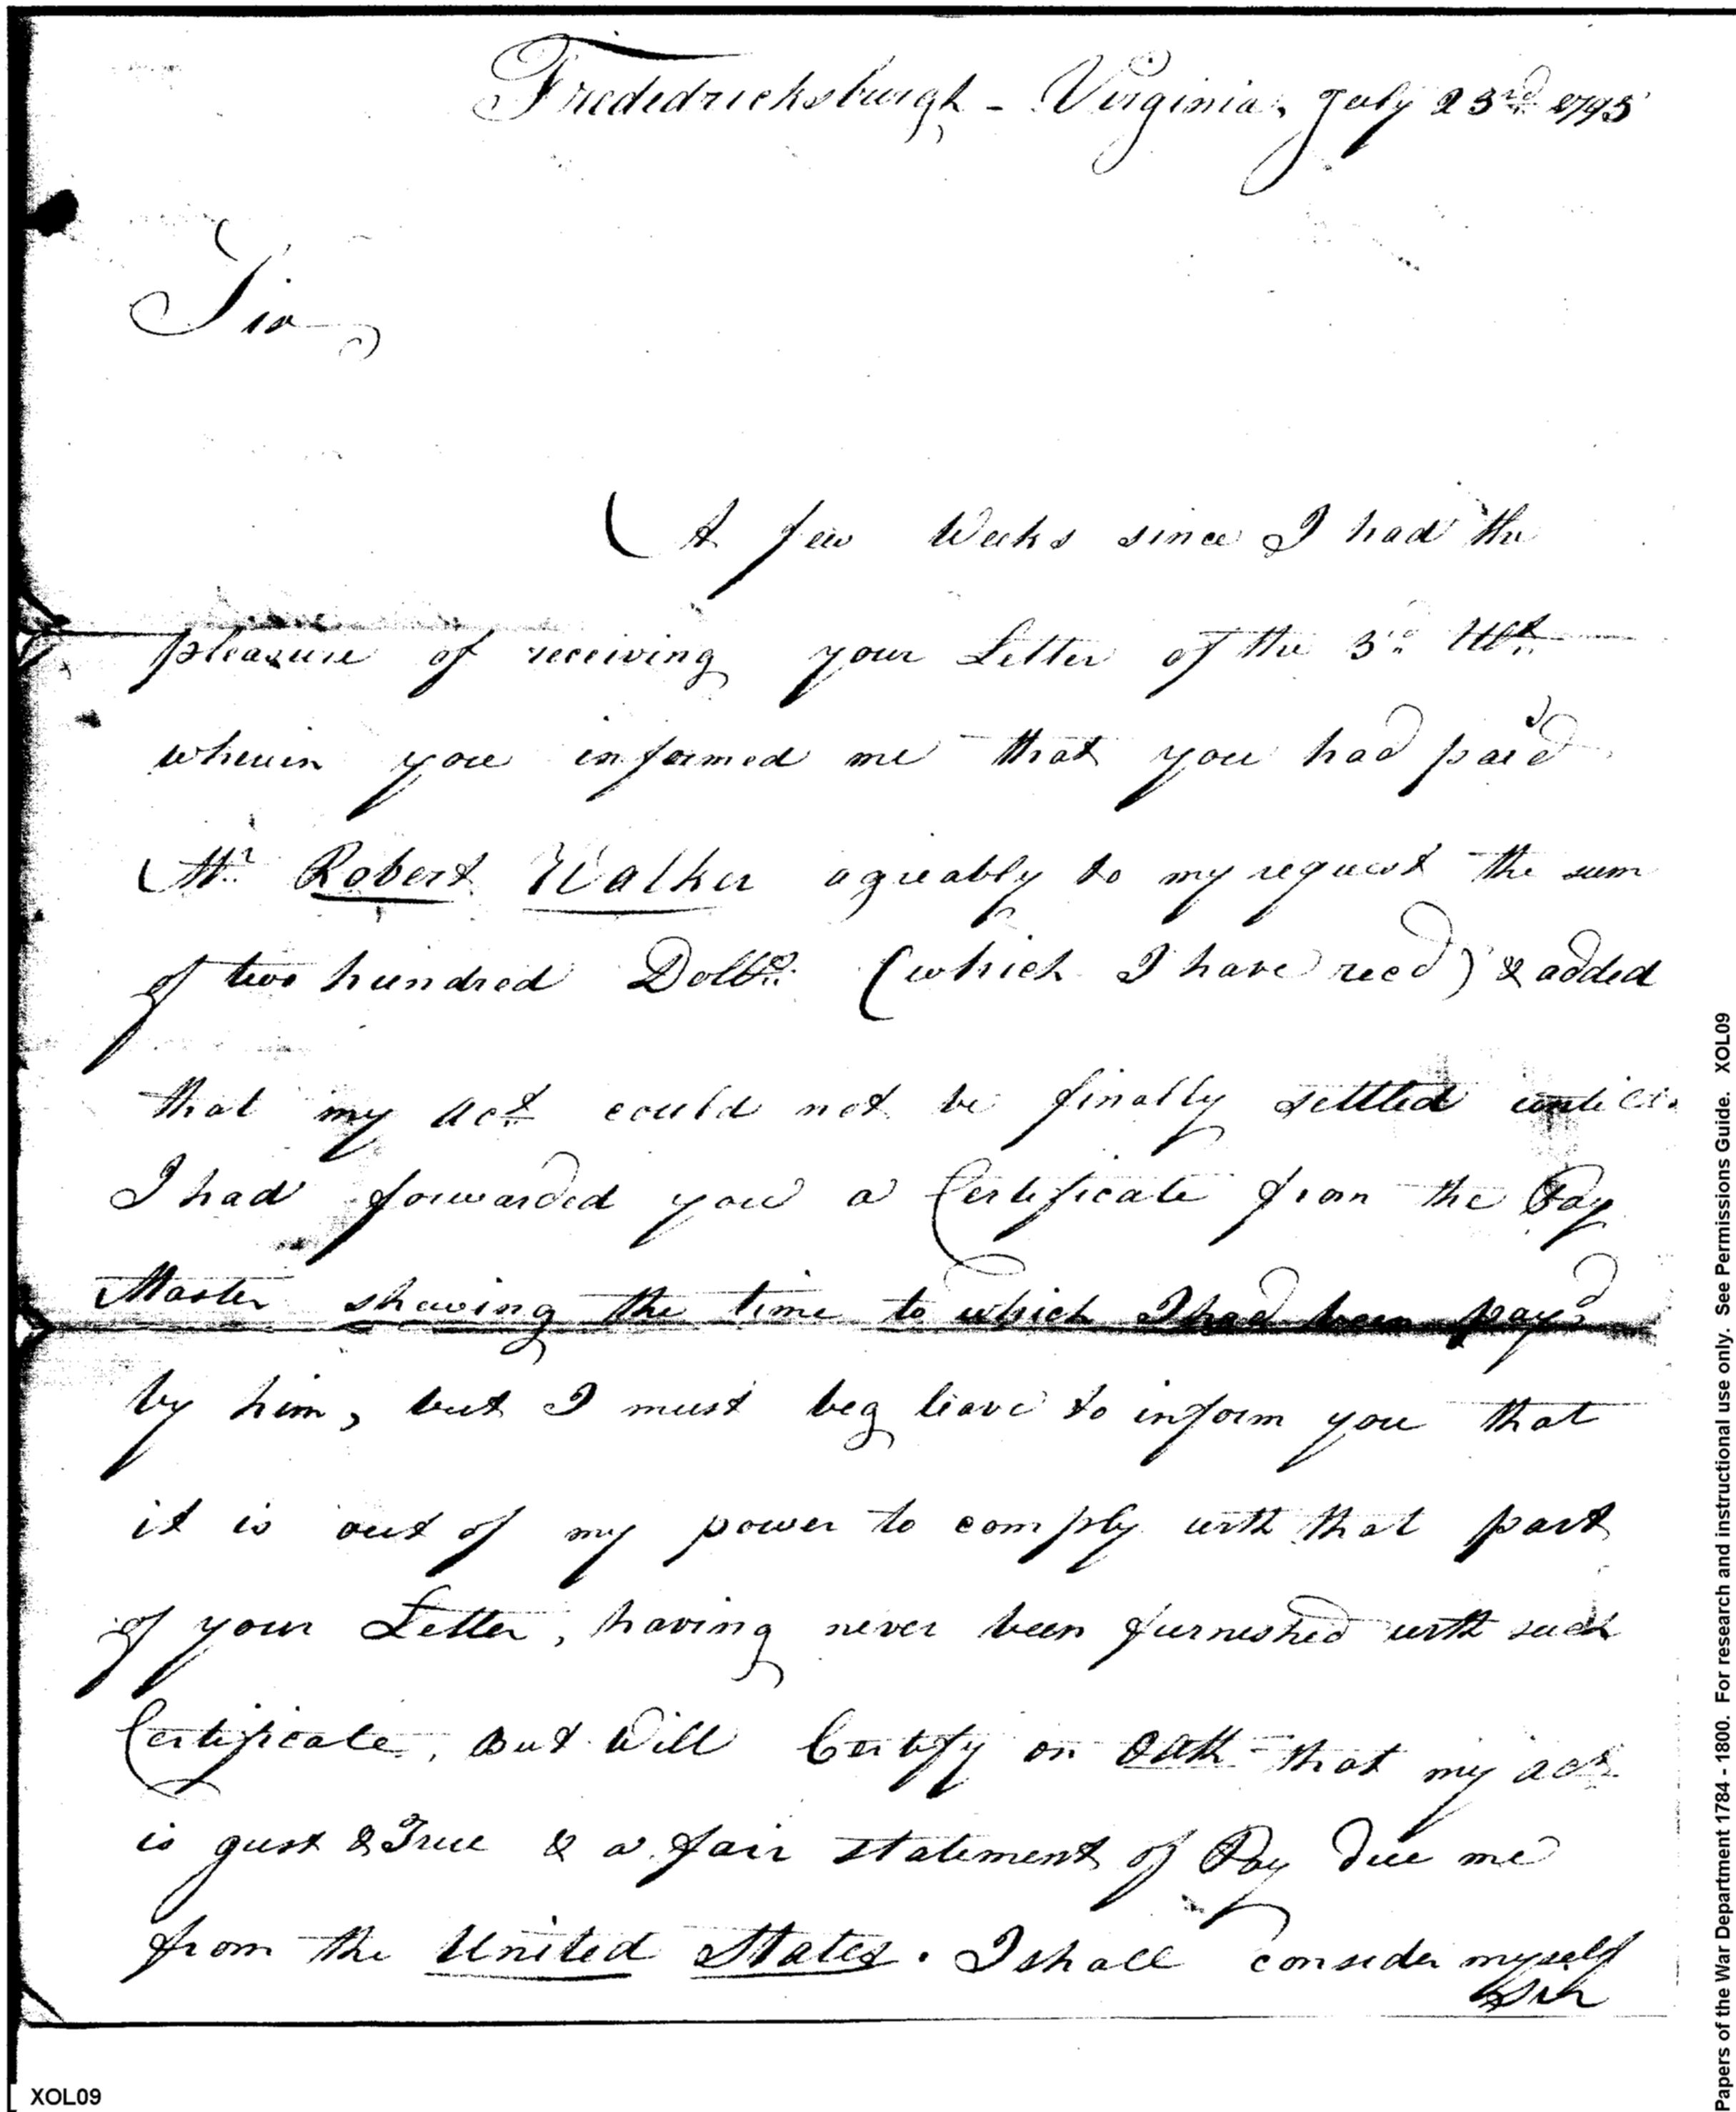 Frededricksburgh - Virginia, July 23rd 1795
Sir
A few Weeks since I had the
pleasure of receiving your Letter of the 3d Ult.
wherein you informed me that you had paid
Mr. Robert Walker agreably to my request the sum
of two hundred Dolls. (which I have recd) & added
that my Act. could not be finally settled untill
I had forwarded you a Certificate from the Pay
Master shewing the time to which I had been payd
by him, but I must beg leave to inform you that
it is out of my power to comply with that part
of your Letter, having never been furnished with such
Certificate, But Will Certify on Oath that my act.
is just & True & a fair statement of Pay due me
from the United States. I shall consider myself
Sir
XOL09
Papers of the War Department 1784 - 1800. For research and instructional use only. See Permissions Guide. XOL09